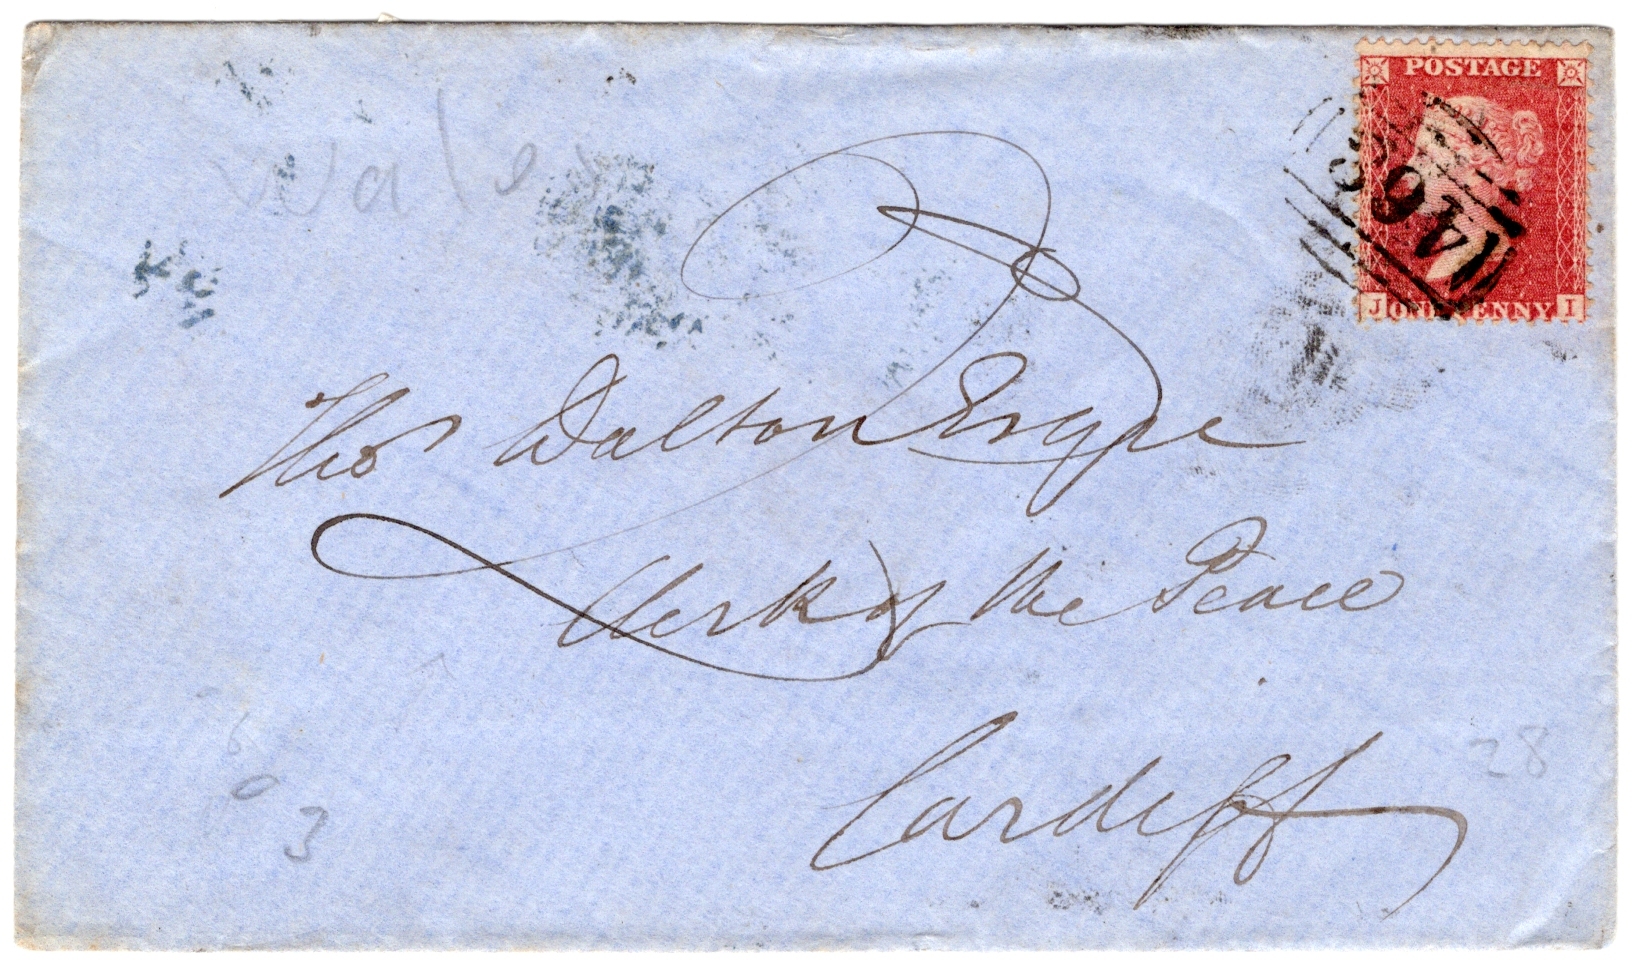 POSTAGE
J ONE PENNY I
A0
Wales
Thos Dalton Esqre
Clerk of the Peace
Cardiff
28
3